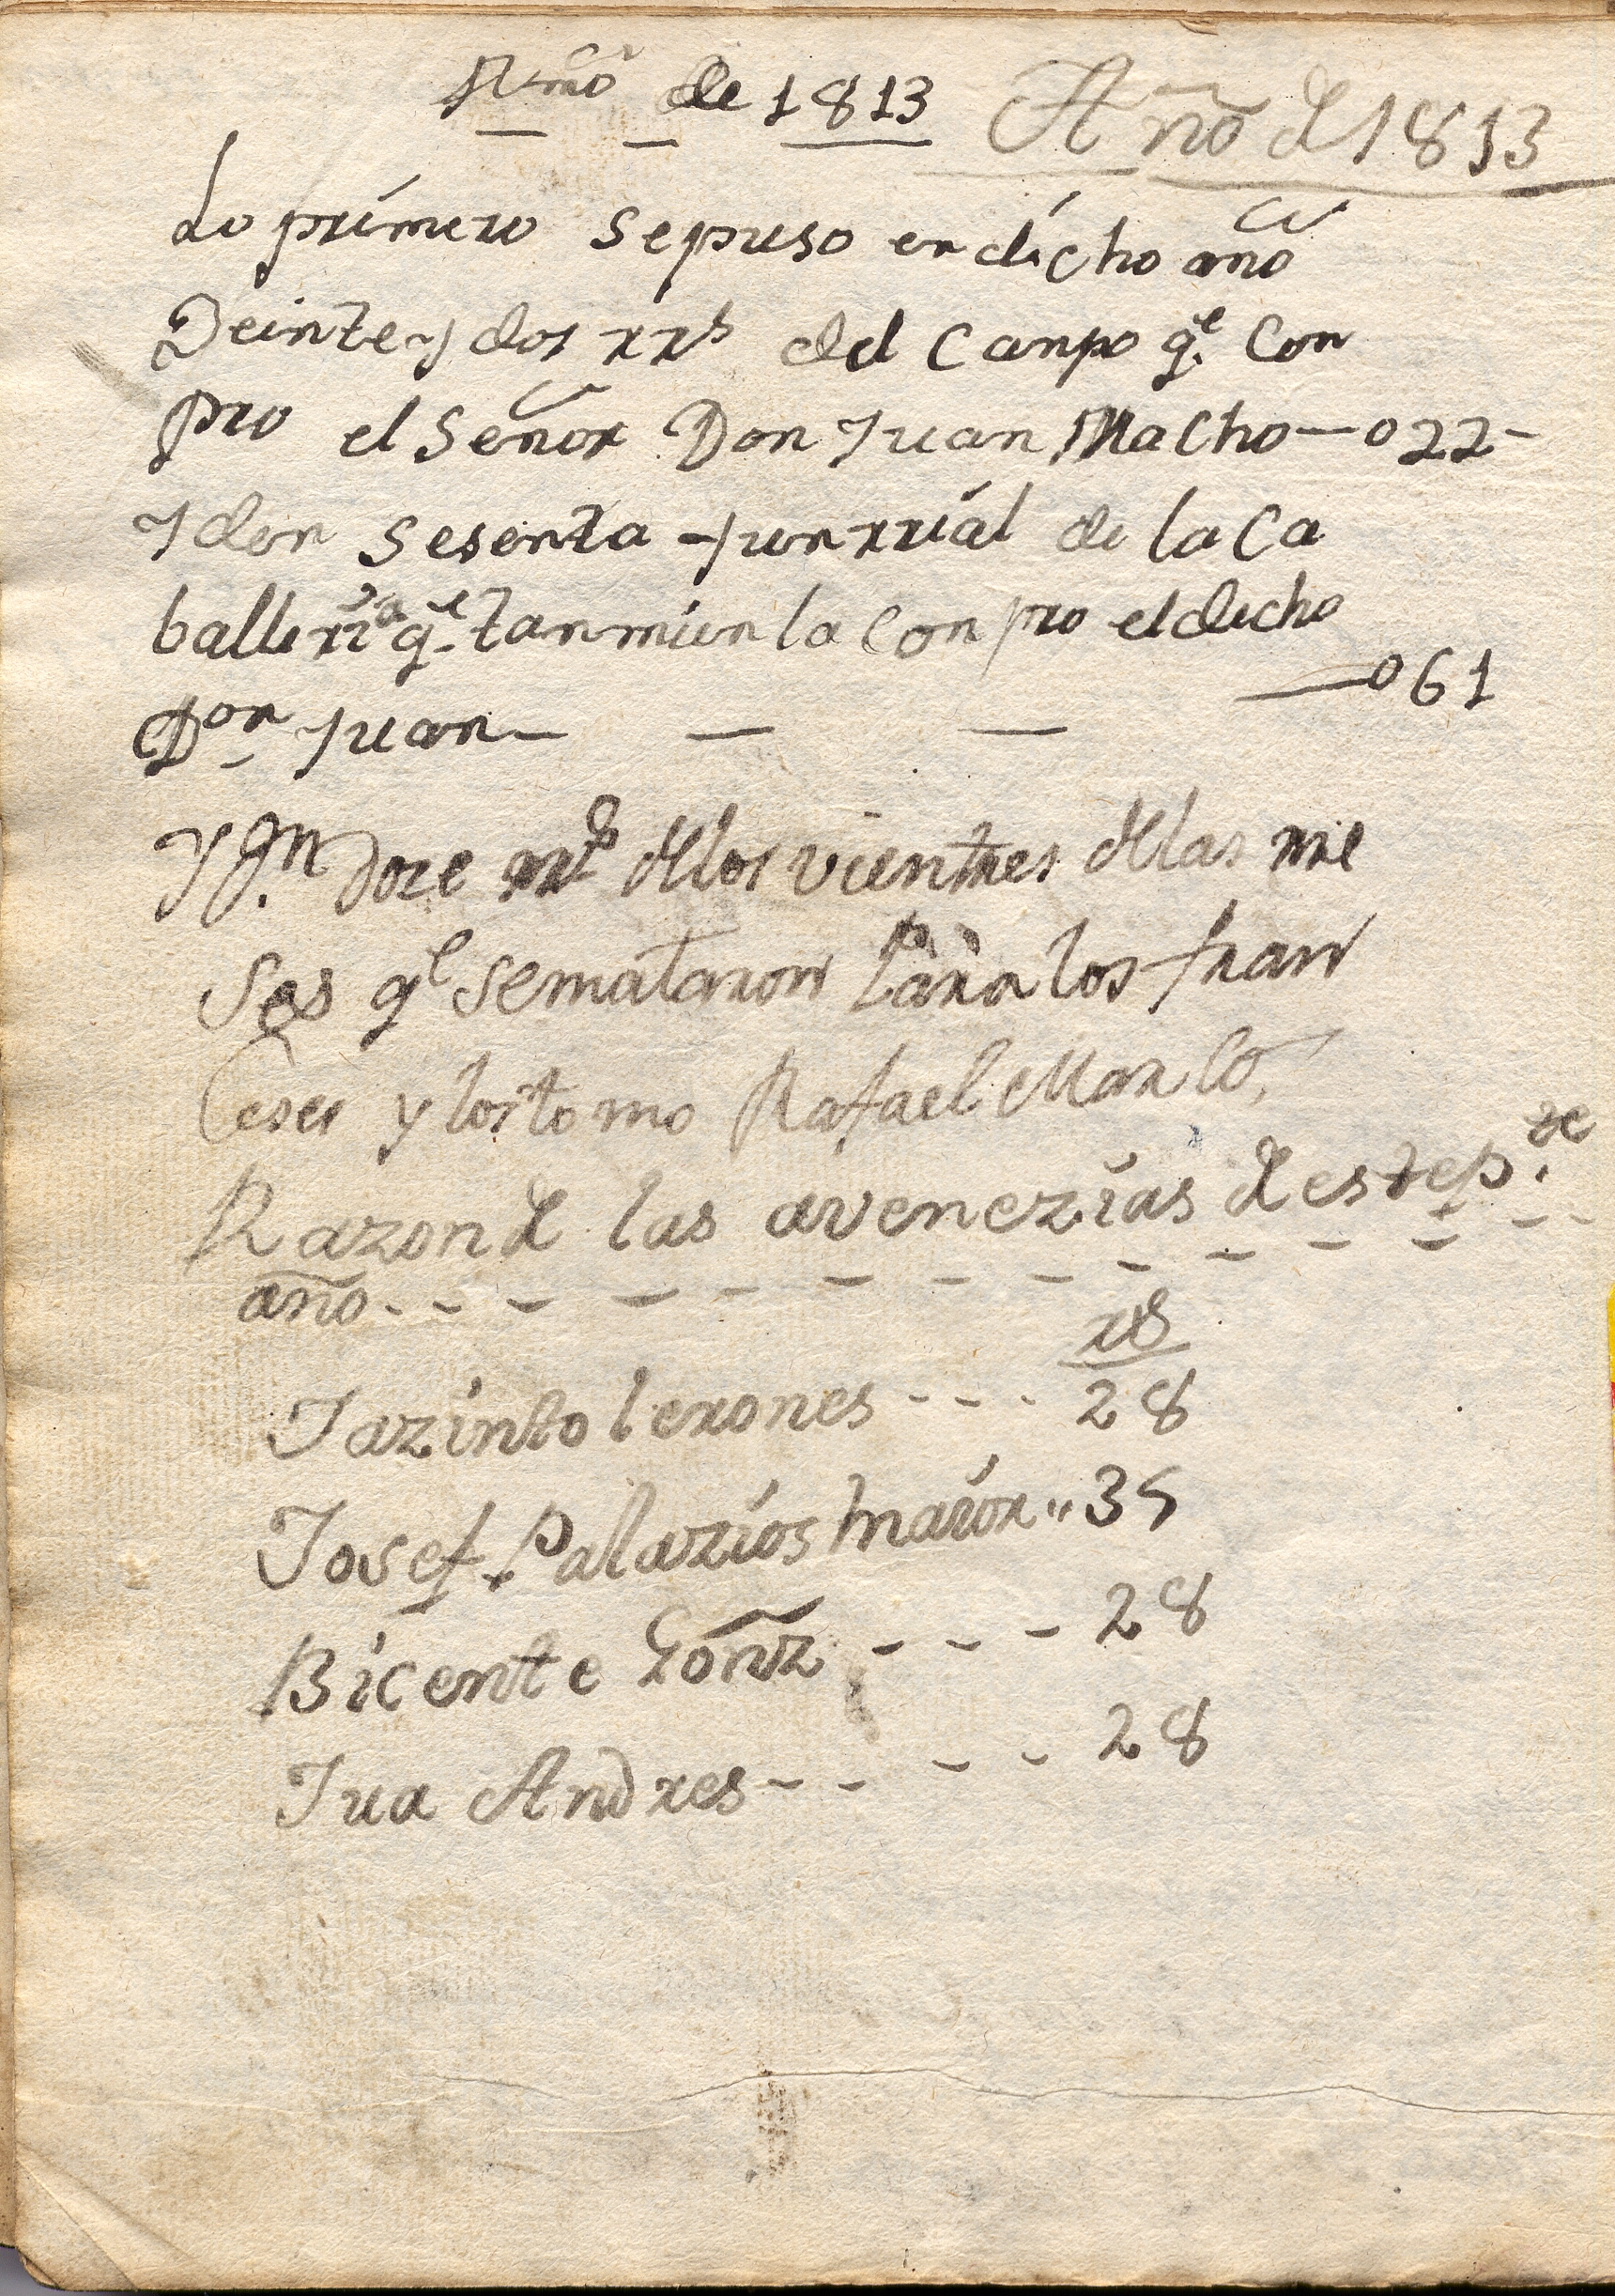 Año de 1813 Año de 1813
Lo primero se puso en dicho año
Veinte y dos rrs del Canpo q.e Con
pro el Señor Don Juan Macho — 022 -
Iden sesenta y un rrial de la Ca
balleria q.e tanmien la Conpro el dicho
Don Juan — — — 061
Yd.n doze rrs de los vientres de las rre
Ses q.e se mataron para los fran
Ceses y los tomo Rafael Marcos
Razon de las avenezias de este p.se
año - - - - - - - - - - - -
rs
Jazinto lerones - - - 28
Josef Palazios maior " 35
Bicente Gonz - - - 28
Jua Andres - - - - 28